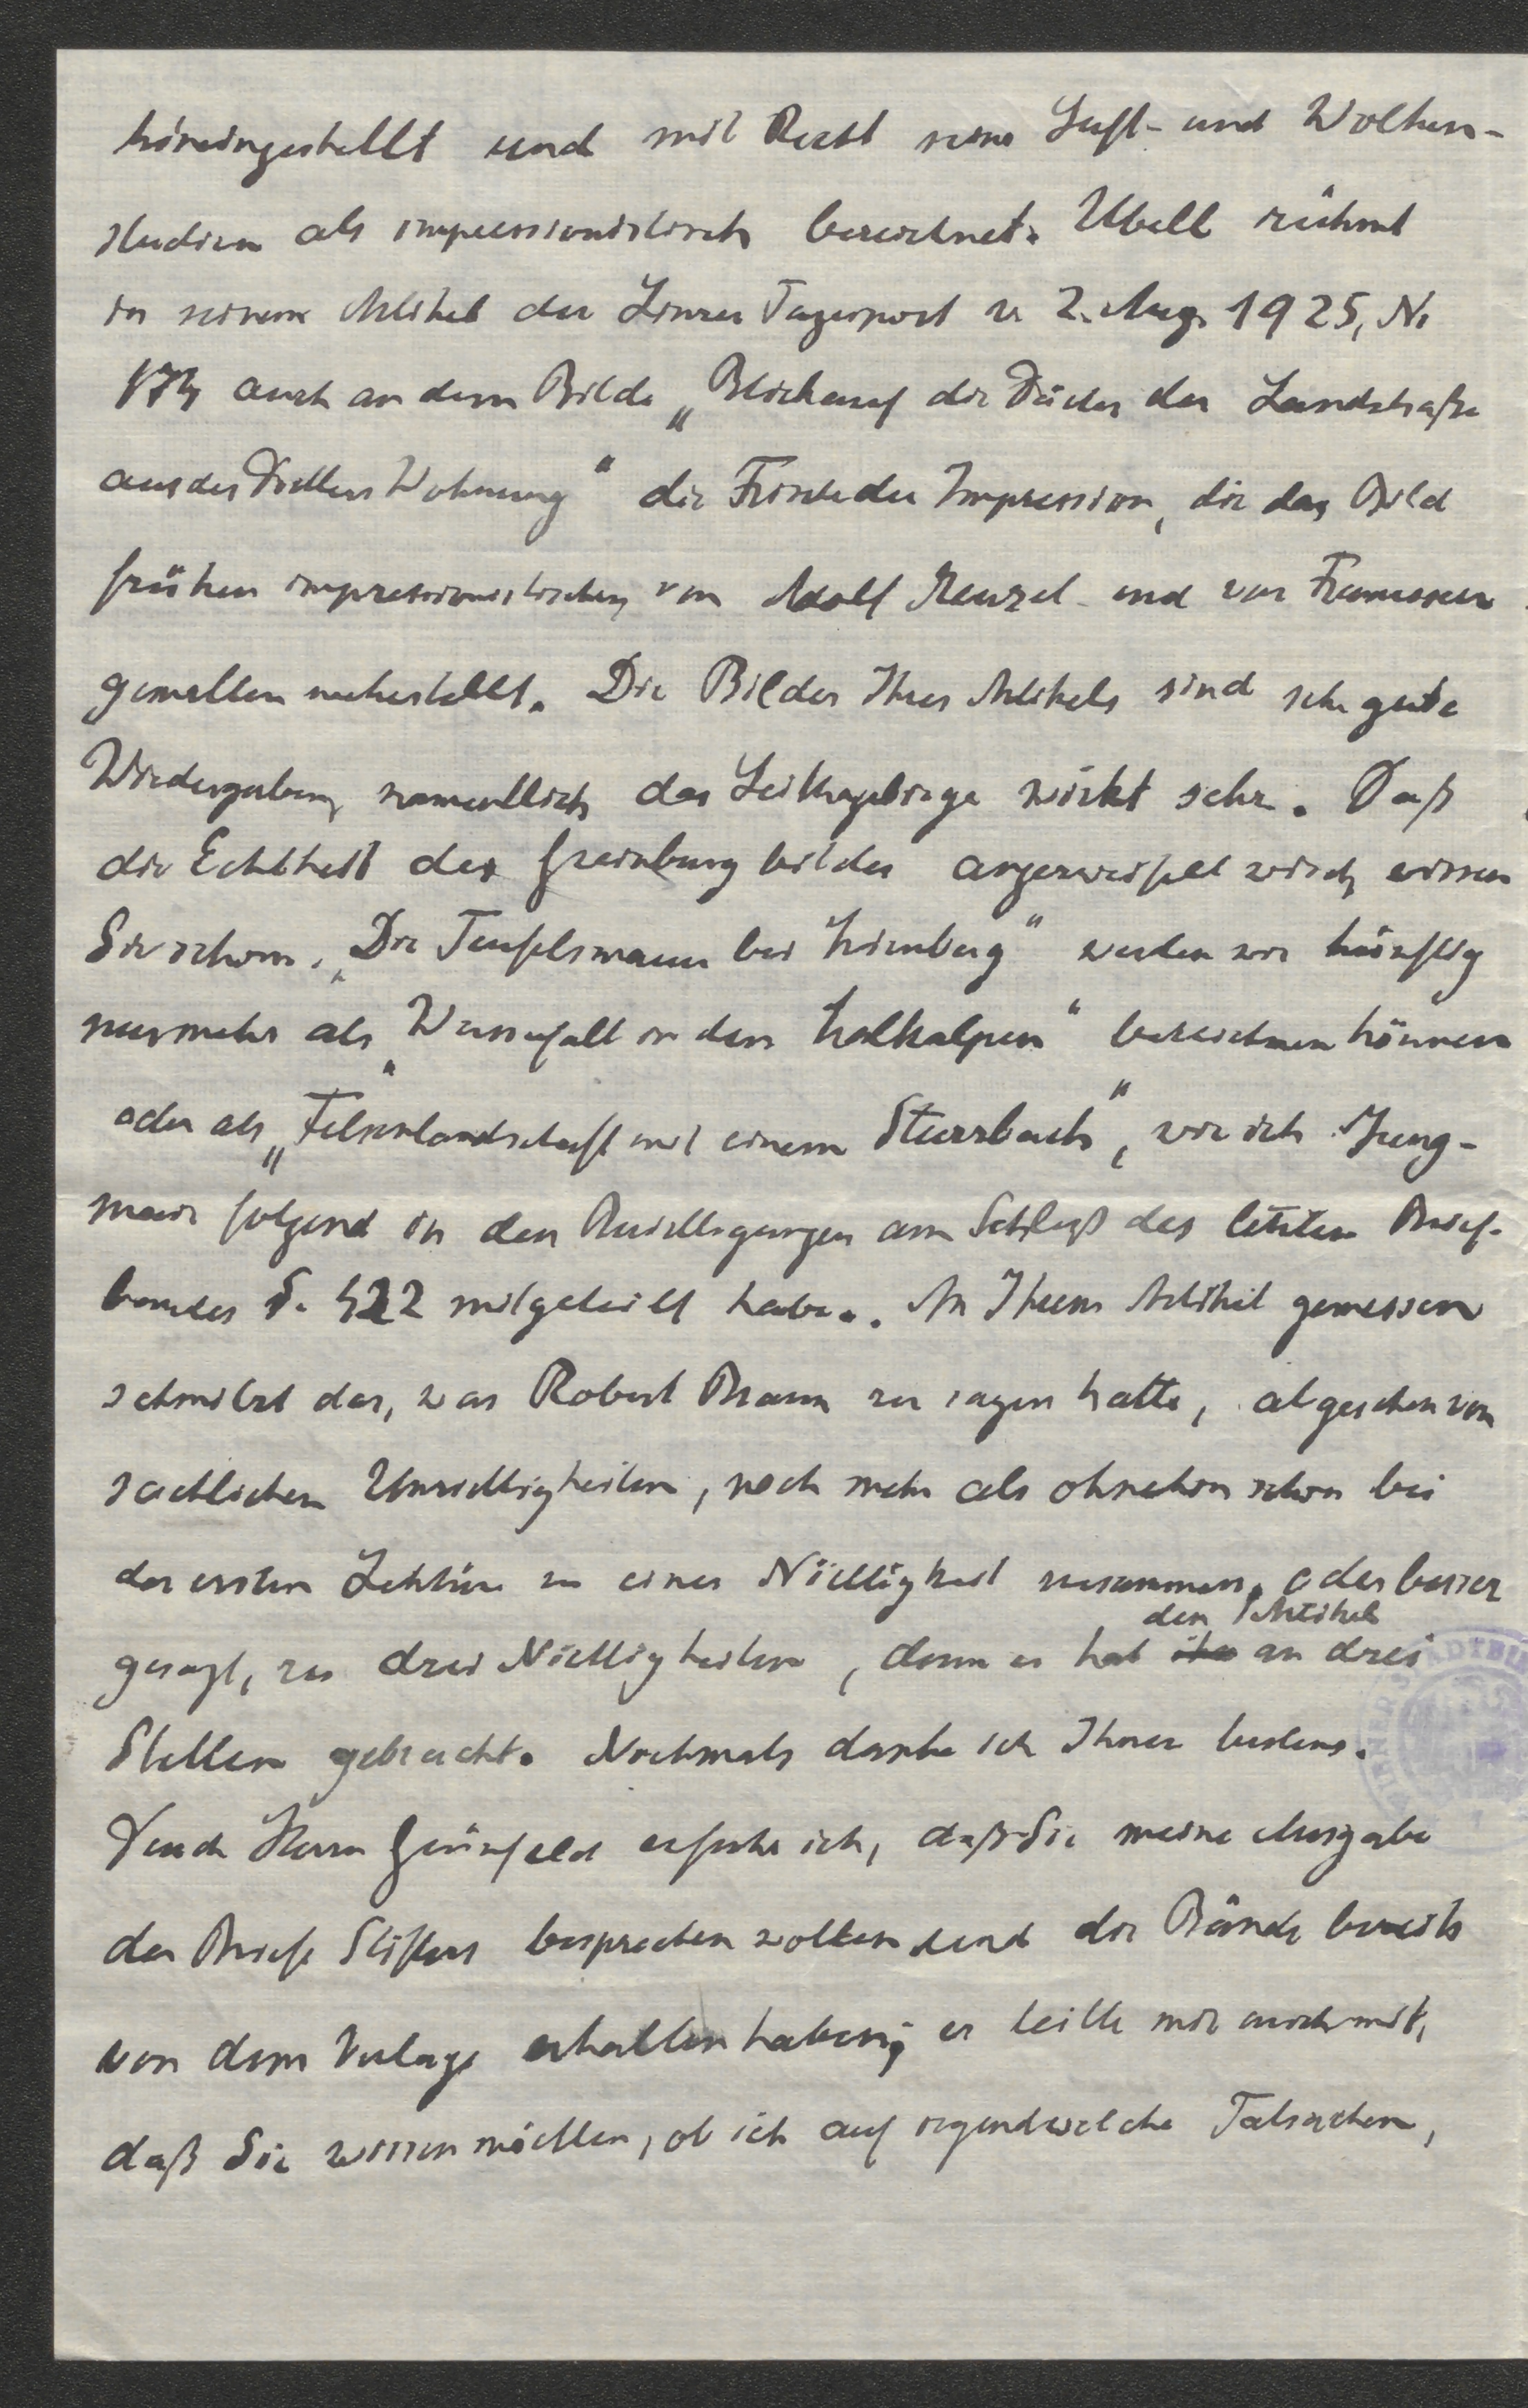 hineingestellt und mit Recht seine Luft- und Wolken-
studien als impressionistisch bezeichnet. Ubell rühmt
in seinem Artikel der Linzer Tagespost v. 2. Aug. 1925, Nr
174 auch an dem Bilde „Blick auf die Dächer der Landstraße
aus des Dichters Wohnung“ die Frische der Impression, die das Bild
frühen impressionistischen von Adolf Menzel und von Franzosen
gemalten nahestellt. Die Bilder Ihres Artikels sind sehr gute
Wiedergaben, namentlich das Leithagebirge wirkt sehr. Daß
die Echtheit des Greinburgbildes angezweifelt wird, wissen
Sie schon. „Die Teufelsmauer bei Kienberg“ werden wir künftig
nurmehr als „Wasserfall in den Kalkalpen“ bezeichnen können
oder als „Felsenlandschaft mit einem Sturzbach“, wie ich Jung-
mair folgend in den Berichtigungen am Schluß des letzten Brief-
bandes S. 422 mitgeteilt habe. An Ihrem Artikel gemessen
schmilzt das, was Robert Braun zu sagen hatte, abgesehen von
sachlichen Unrichtigkeiten, noch mehr als ohnehin schon bei
der ersten Lektüre zu einer Nichtigkeit zusammen. oder besser
gesagt, zu drei Nichtigkeiten, denn er hat den Artikel an drei
Stellen gebracht. Nochmals danke ich Ihnen bestens.
Durch Herrn Grünfeld erfuhr ich, daß Sie meine Ausgabe
der Briefe Stifters besprechen wollen und die Bände bereits
von dem Verlage erhalten haben; er teilte mir auch mit,
daß Sie wissen möchten, ob ich auf irgendwelche Tatsachen,